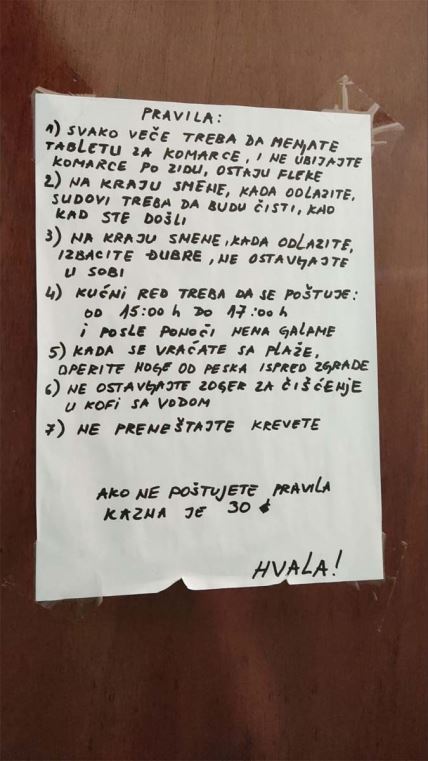 PRAVILA:
1) SVAKO VEČE TREBA DA MENJATE
TABLETU ZA KOMARCE, I NE UBIJAJTE
KOMARCE PO ZIDU, OSTAJU FLEKE
2) NA KRAJU SMENE, KADA ODLAZITE,
SUDOVI TREBA DA BUDU ČISTI, KAO
KAD STE DOŠLI
3) NA KRAJU SMENE, KADA ODLAZITE,
IZBACITE ĐUBRE, NE OSTAVLJAJTE
U SOBI
4) KUĆNI RED TREBA DA SE POŠTUJE:
OD 15:00 h DO 17:00 h
I POSLE PONOĆI NEMA GALAME
5) KADA SE VRAĆATE SA PLAŽE,
OPERITE NOGE OD PESKA ISPRED ZGRADE
6) NE OSTAVLJAJTE ZOGER ZA ČIŠĆENJE
U KOFI SA VODOM
7) NE PREMEŠTAJTE KREVETE
AKO NE POŠTUJETE PRAVILA
KAZNA JE 30
HVALA!